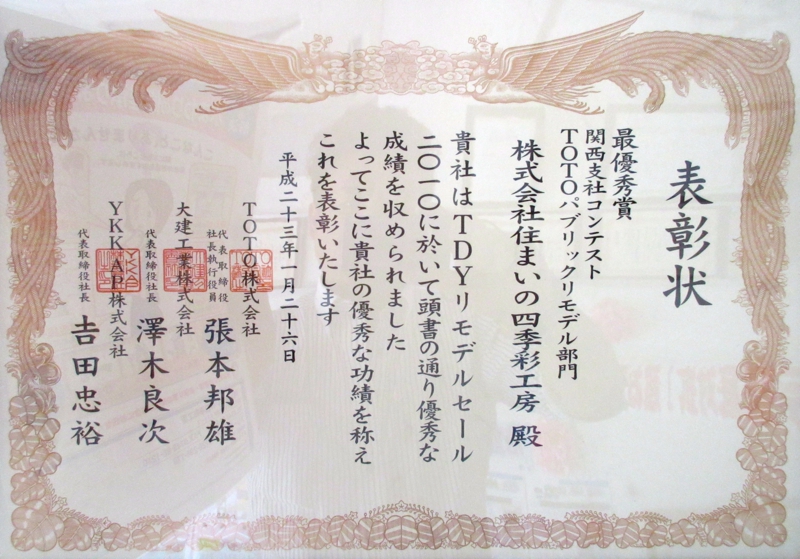 表彰状
最優秀賞
関西支社コンテスト
TOTOパブリックリモデル部門
株式会社住まいの四季彩工房 殿
貴社はTDYリモデルセール
二〇一〇に於いて頭書の通り優秀な
成績を収められました
よってここに貴社の優秀な功績を称え
これを表彰いたします
平成二十三年一月二十六日
TOTO株式会社
代表取締役
社長執行役員
張本邦雄
大建工業株式会社
代表取締役社長
澤木良次
YKK AP株式会社
代表取締役社長
𠮷田忠裕